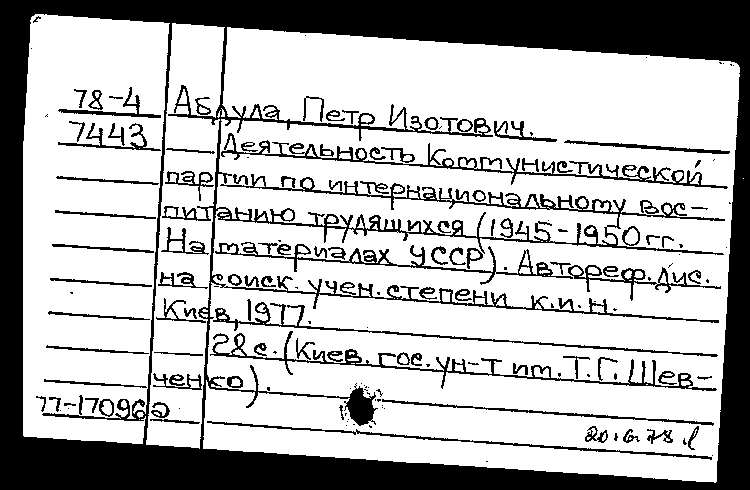 78-4 Абдула, Петр Изотович.
7443 Деятельность Коммунистической
партии по интернациональному вос-
питанию трудящихся (1945-1950гг.
На материалах УССР). Автореф. дис.
на соиск. учен. степени к.и.н.
Киев, 1977.
22с. (Киев. гос. ун-т им. Т.Г. Шев-
ченко).
77-17096э
20.6.78